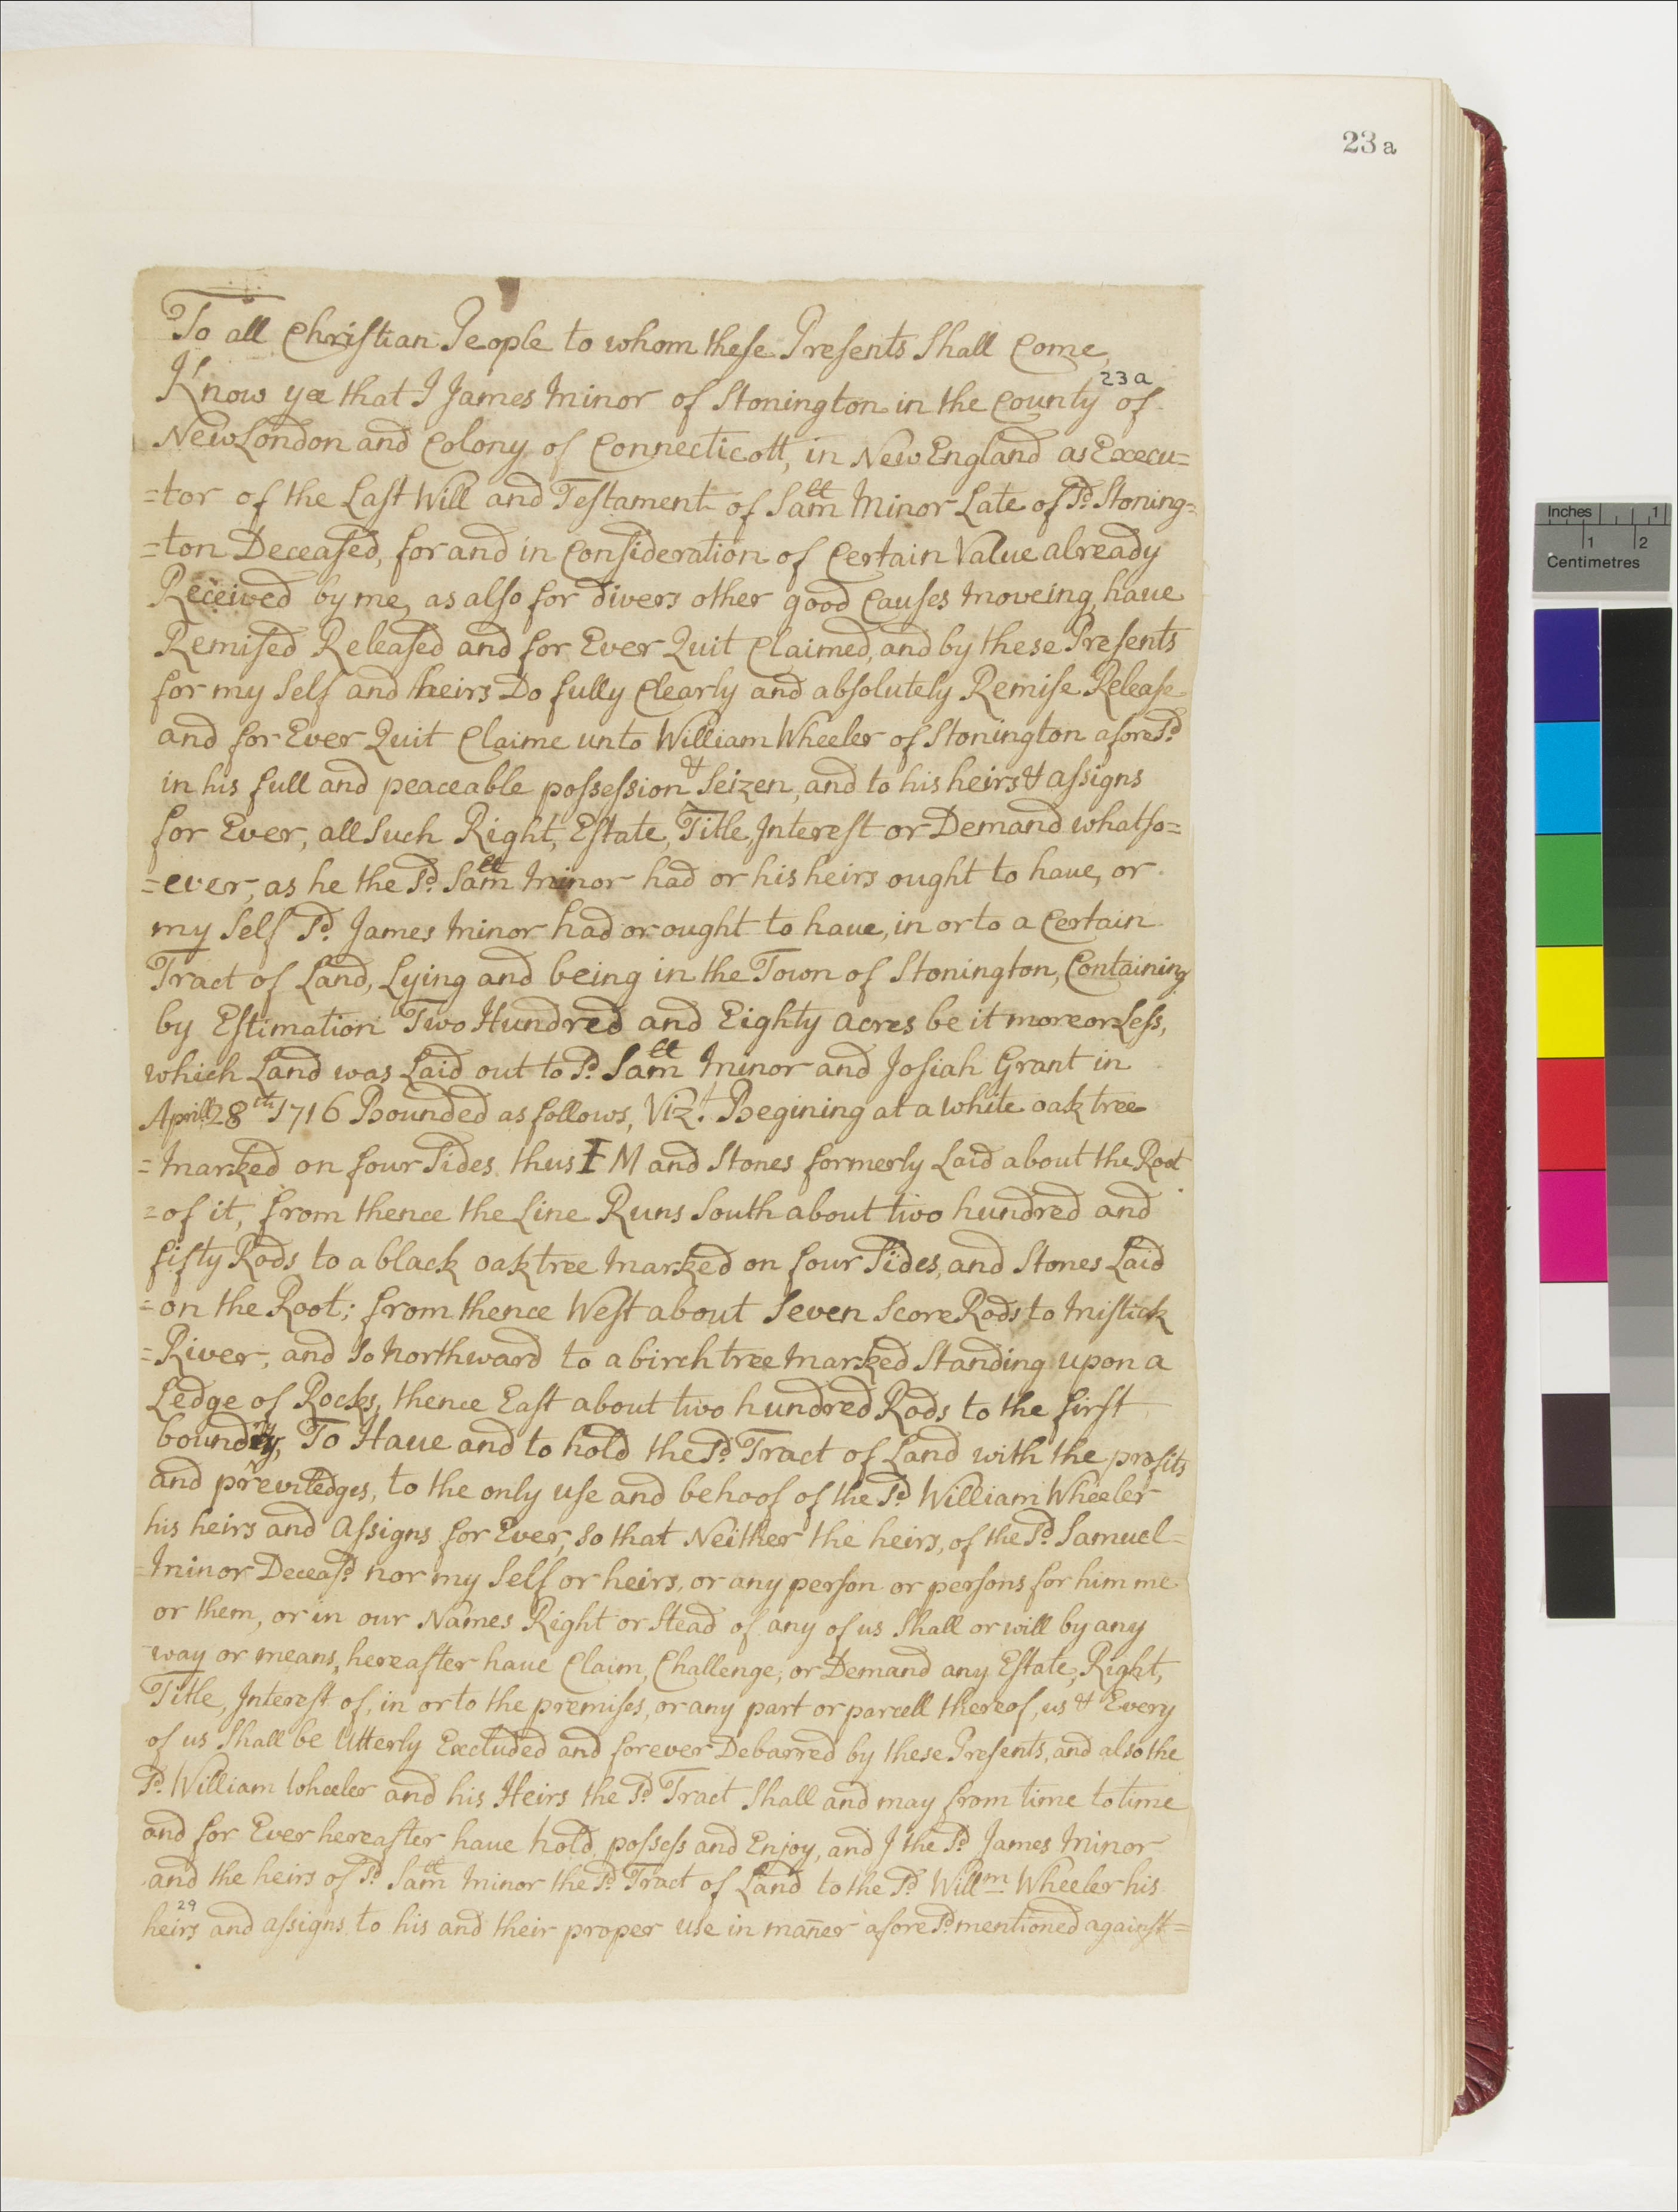 23 a
To all Christian People to whom these Presents Shall Come,
23 a
Know yee that I James Minor of Stonington in the County of
New London and Colony of Connecticott, in New England as Execu=
=tor of the Last Will and Testament of Samll Minor Late of Sd. Stoning=
=ton Deceased, for and in Consideration of Certain Value already
Received by me, as also for divers other good Causes moveing, haue
Remised Released and for Ever Quit Claimed, and by these Presents
for my Self and heirs Do fully Clearly and absolutely Remise Release
and for Ever Quit Claime unto William Wheeler of Stonington afore Sd.
in his full and peaceable possession & Seizen, and to his heirs & assigns
for Ever, all Such Right, Estate, Title, Interest or Demand whatso=
=ever, as he the Sd. Samll Minor had or his heirs ought to haue, or
my Self Sd. James Minor had or ought to haue, in or to a Certain
Tract of Land, Lying and being in the Town of Stonington, Containing
by Estimation Two Hundred and Eighty acres be it more or Less,
which Land was Laid out to Sd. Samll Minor and Josiah Grant in
Aprill 28th 1716 Bounded as follows, Vizt. Begining at a white oak tree
=marked on four Sides thus I M and Stones formerly Laid about the Root
=of it, from thence the Line Runs South about two hundred and
fifty Rods to a black oak tree marked on four Sides, and Stones Laid
=on the Root; from thence West about Seven Score Rods to Mistick
=River, and So Northward to a birch tree marked Standing upon a
Ledge of Rocks, thence East about two hundred Rods to the first
boundry, To Haue and to hold the Sd. Tract of Land with the profits
and previledges, to the only use and behoof of the Sd. William Wheeler
his heirs and Assigns for Ever, So that Neither the heirs, of the Sd. Samuel=
=Minor Deceasd. nor my Self or heirs, or any person or persons for him me
or them, or in our Names Right or Stead of any of us Shall or will by any
way or means, hereafter haue Claim, Challenge, or Demand any Estate, Right,
Title, Interest of, in or to the premises, or any part or parcell thereof, us & Every
of us Shall be Utterly Excluded and forever Debarred by these Presents, and also the
Sd. William Wheeler and his Heirs the Sd. Tract Shall and may from time to time
and for Ever hereafter haue hold, possess and Enjoy, and I the Sd. James Minor
and the heirs of Sd. Samll Minor the Sd. Tract of Land to the Sd. Willm Wheeler his
29
heirs and assigns to his and their proper use in mañer afore Sd. mentioned against=
Inches 1
1 2
Centimetres